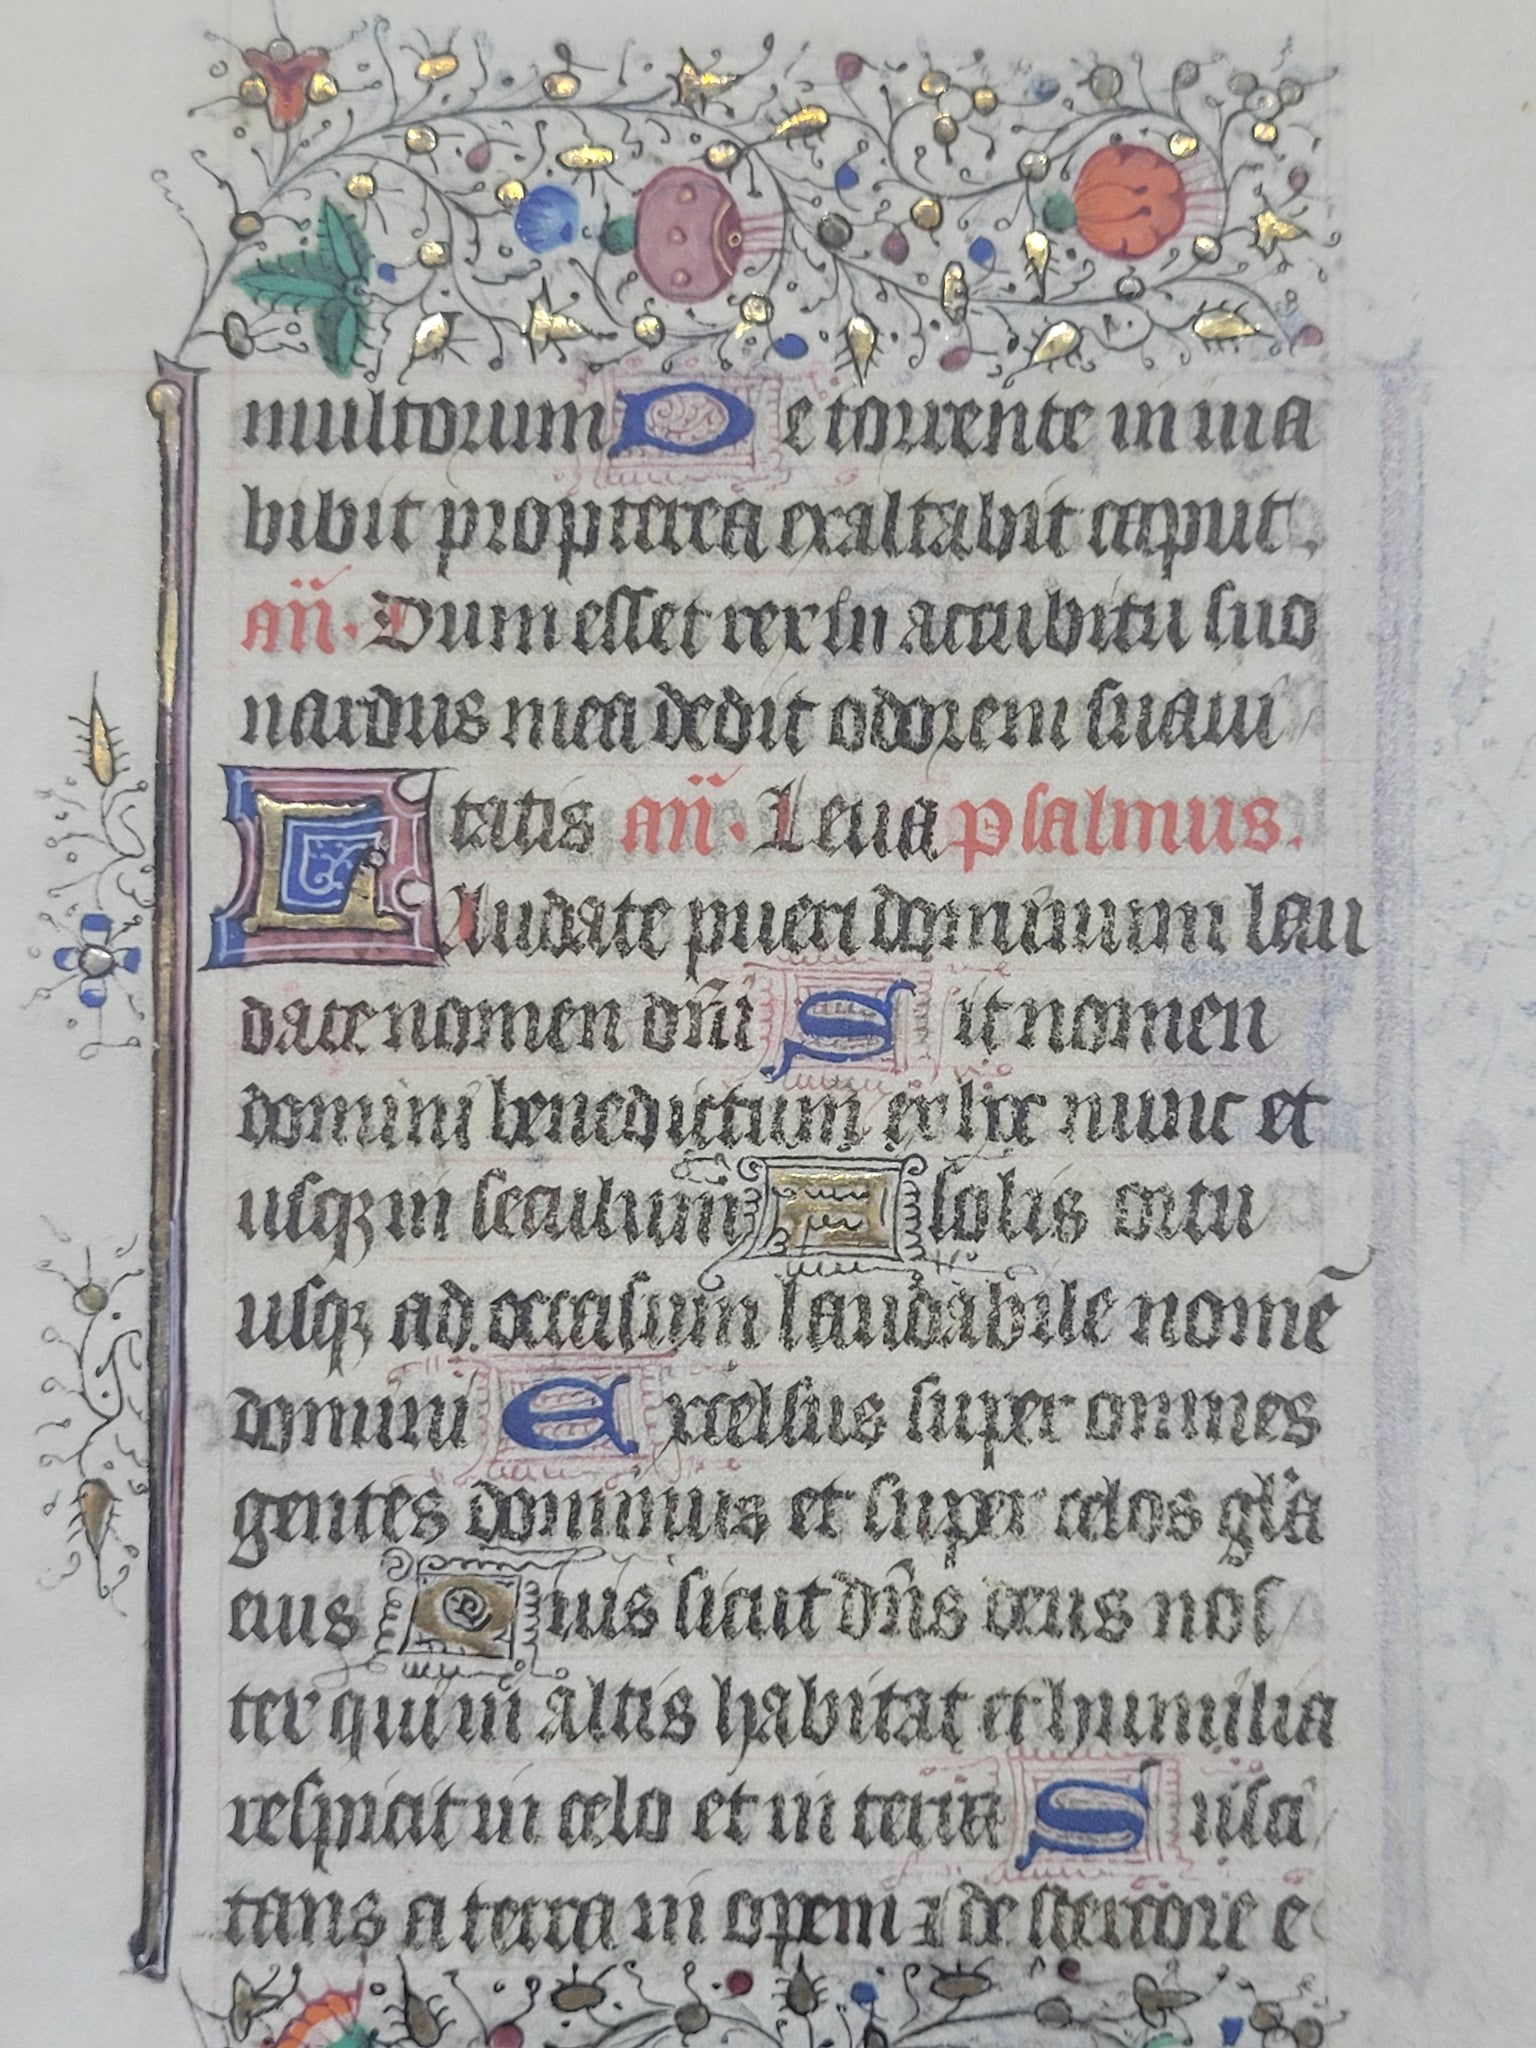 multorum De torrente in uia
bibit propterea exaltabit caput.
an̄. Dum esset rex in accubitu suo
nardus mea dedit odorem suaui
tatis an̄. Leua psalmus.
Laudate pueri dominum lau
date nomen dn̄i Sit nomen
domini benedictum ex hoc nunc et
usqꝫ in seculum A solis ortu
usqꝫ ad occasum laudabile nomē
domini Excelsus super omnes
gentes dominus et super celos gl̄ia
eius Quis sicut dn̄s deus nos
ter qui in altis habitat et humilia
respicit in celo et in terra Susci
tans a terra inopem ⁊ de stercore e